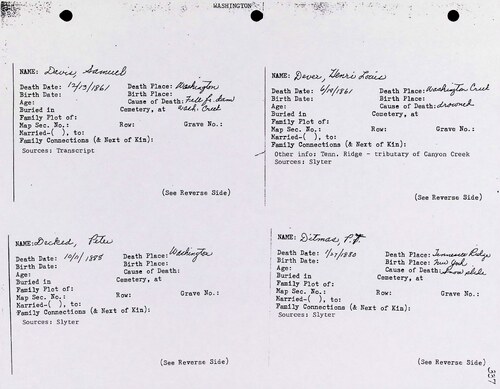 WASHINGTON
NAME: Davis, Samuel
Death Date: 12/13/1861 Death Place: Washington
Birth Date: Birth Place:
Age: Cause of Death: Fall fr. dam
Buried in Cemetery, at Wash. Creek
Family Plot of:
Map Sec. No.: Row: Grave No.:
Married-( ), to:
Family Connections (& Next of Kin):
Sources: Transcript
(See Reverse Side)
NAME: Dever, Henri Louis
Death Date: 6/19/1861 Death Place: Washington Creek
Birth Date: Birth Place:
Age: Cause of Death: drowned
Buried in Cemetery, at
Family Plot of:
Map Sec. No.: Row: Grave No.:
Married-( ), to:
Family Connections (& Next of Kin):
Other info: Tenn. Ridge - tributary of Canyon Creek
Sources: Slyter
(See Reverse Side)
NAME: Decked, Peter
Death Date: 10/11/1888 Death Place: Washington
Birth Date: Birth Place:
Age: Cause of Death:
Buried in Cemetery, at
Family Plot of:
Map Sec. No.: Row: Grave No.:
Married-( ), to:
Family Connections (& Next of Kin):
Sources: Slyter
(See Reverse Side)
NAME: Ditmas, P.T.
Death Date: 1/27/1880 Death Place: Tennessee Ridge
Birth Date: Birth Place: New York
Age: Cause of Death: Snow slide
Buried in Cemetery, at
Family Plot of:
Map Sec. No.: Row: Grave No.:
Married-( ), to:
Family Connections (& Next of Kin):
Sources: Slyter
(See Reverse Side)
337